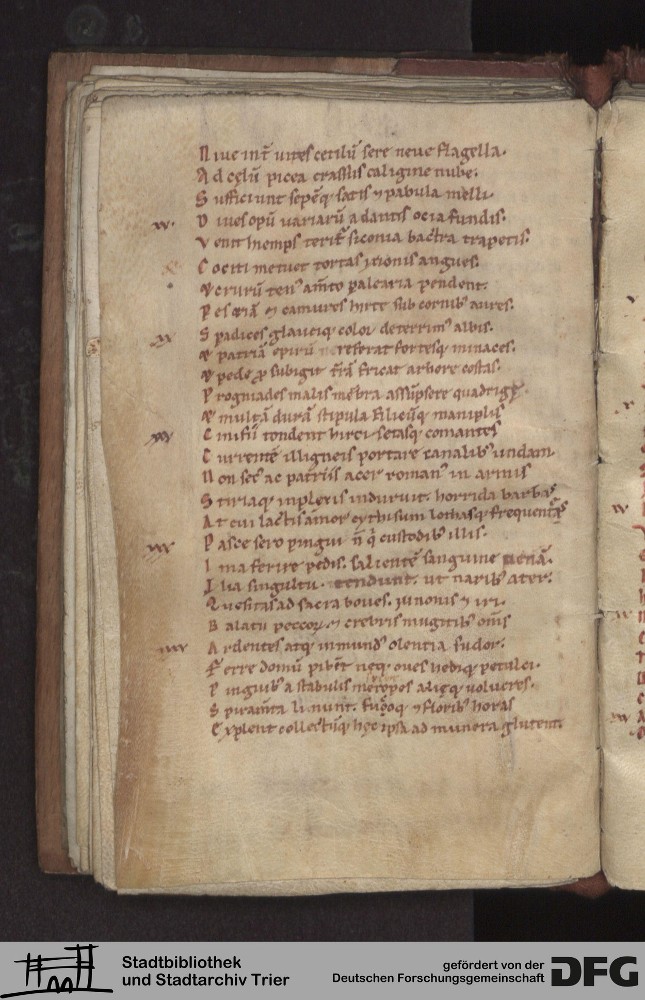 Niue int̄ uites cetilū sere neue flagella.
Ad celū picea crassis caligine nube.
Sufficiunt sepēq; satis ⁊ pabula melli.
Diues opū uariarū adantis ocia fundis.
Venit hiemps teritr̄ siconia bactra trapetis.
Cociti metuet tortas ixionis angues.
crurū ten' am̄to palearia pendent.
Pes etiā ⁊ camures hirte sub cornib; aures.
Spadices glauciq; color deterrim' albis.
patriā epirū referat fortesq; minaces.
pede subigit t̄rā fricat arbore costas.
Progniades malis mēbra assūpsere quadrige.
multā durā stipula filicūq; maniplis
Cinifii tondent hirci setasq; comantes
Currente illigneis portare canalib; undam
Non sec' ac patriis acer roman' in armis
Stiriaq; inplexis induruit. horrida barbas
At cui lactis amor cythisum lothasq; frequentes
Pasce sero pingui n̄ q̄ custodib; illis.
Ima ferire pedis. salientē sanguine uenā.
Ilia singultu. tendunt. ut narib; ater.
Quesitas ad sacra boues. iunonis ⁊ iri.
Balatu peccoꝝ. ⁊ crebris mugitib; om̄s
Ardentes atq; inmund' olentia sudor.
Ferre domū pibēt neq; oues hedıq; petulci.
Pinguib; a stabulis meropes alieq; uolucres.
Spiram̄ta linunt. fucoq; ⁊ florib; horas
Explent collectūq; hec ipsa ad munera gluten.
Stadtbibliothek
und Stadtarchiv Trier
gefördert von der
Deutschen Forschungsgemeinschaft
DFG